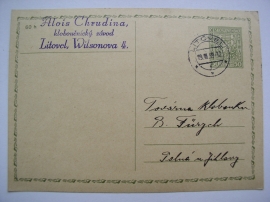 Alois Chrudina,
kloboučnický závod
Litovel, Wilsonova 4.
LITOVEL
Továrna klobouků
B. Fürych
Polná u Jihlavy